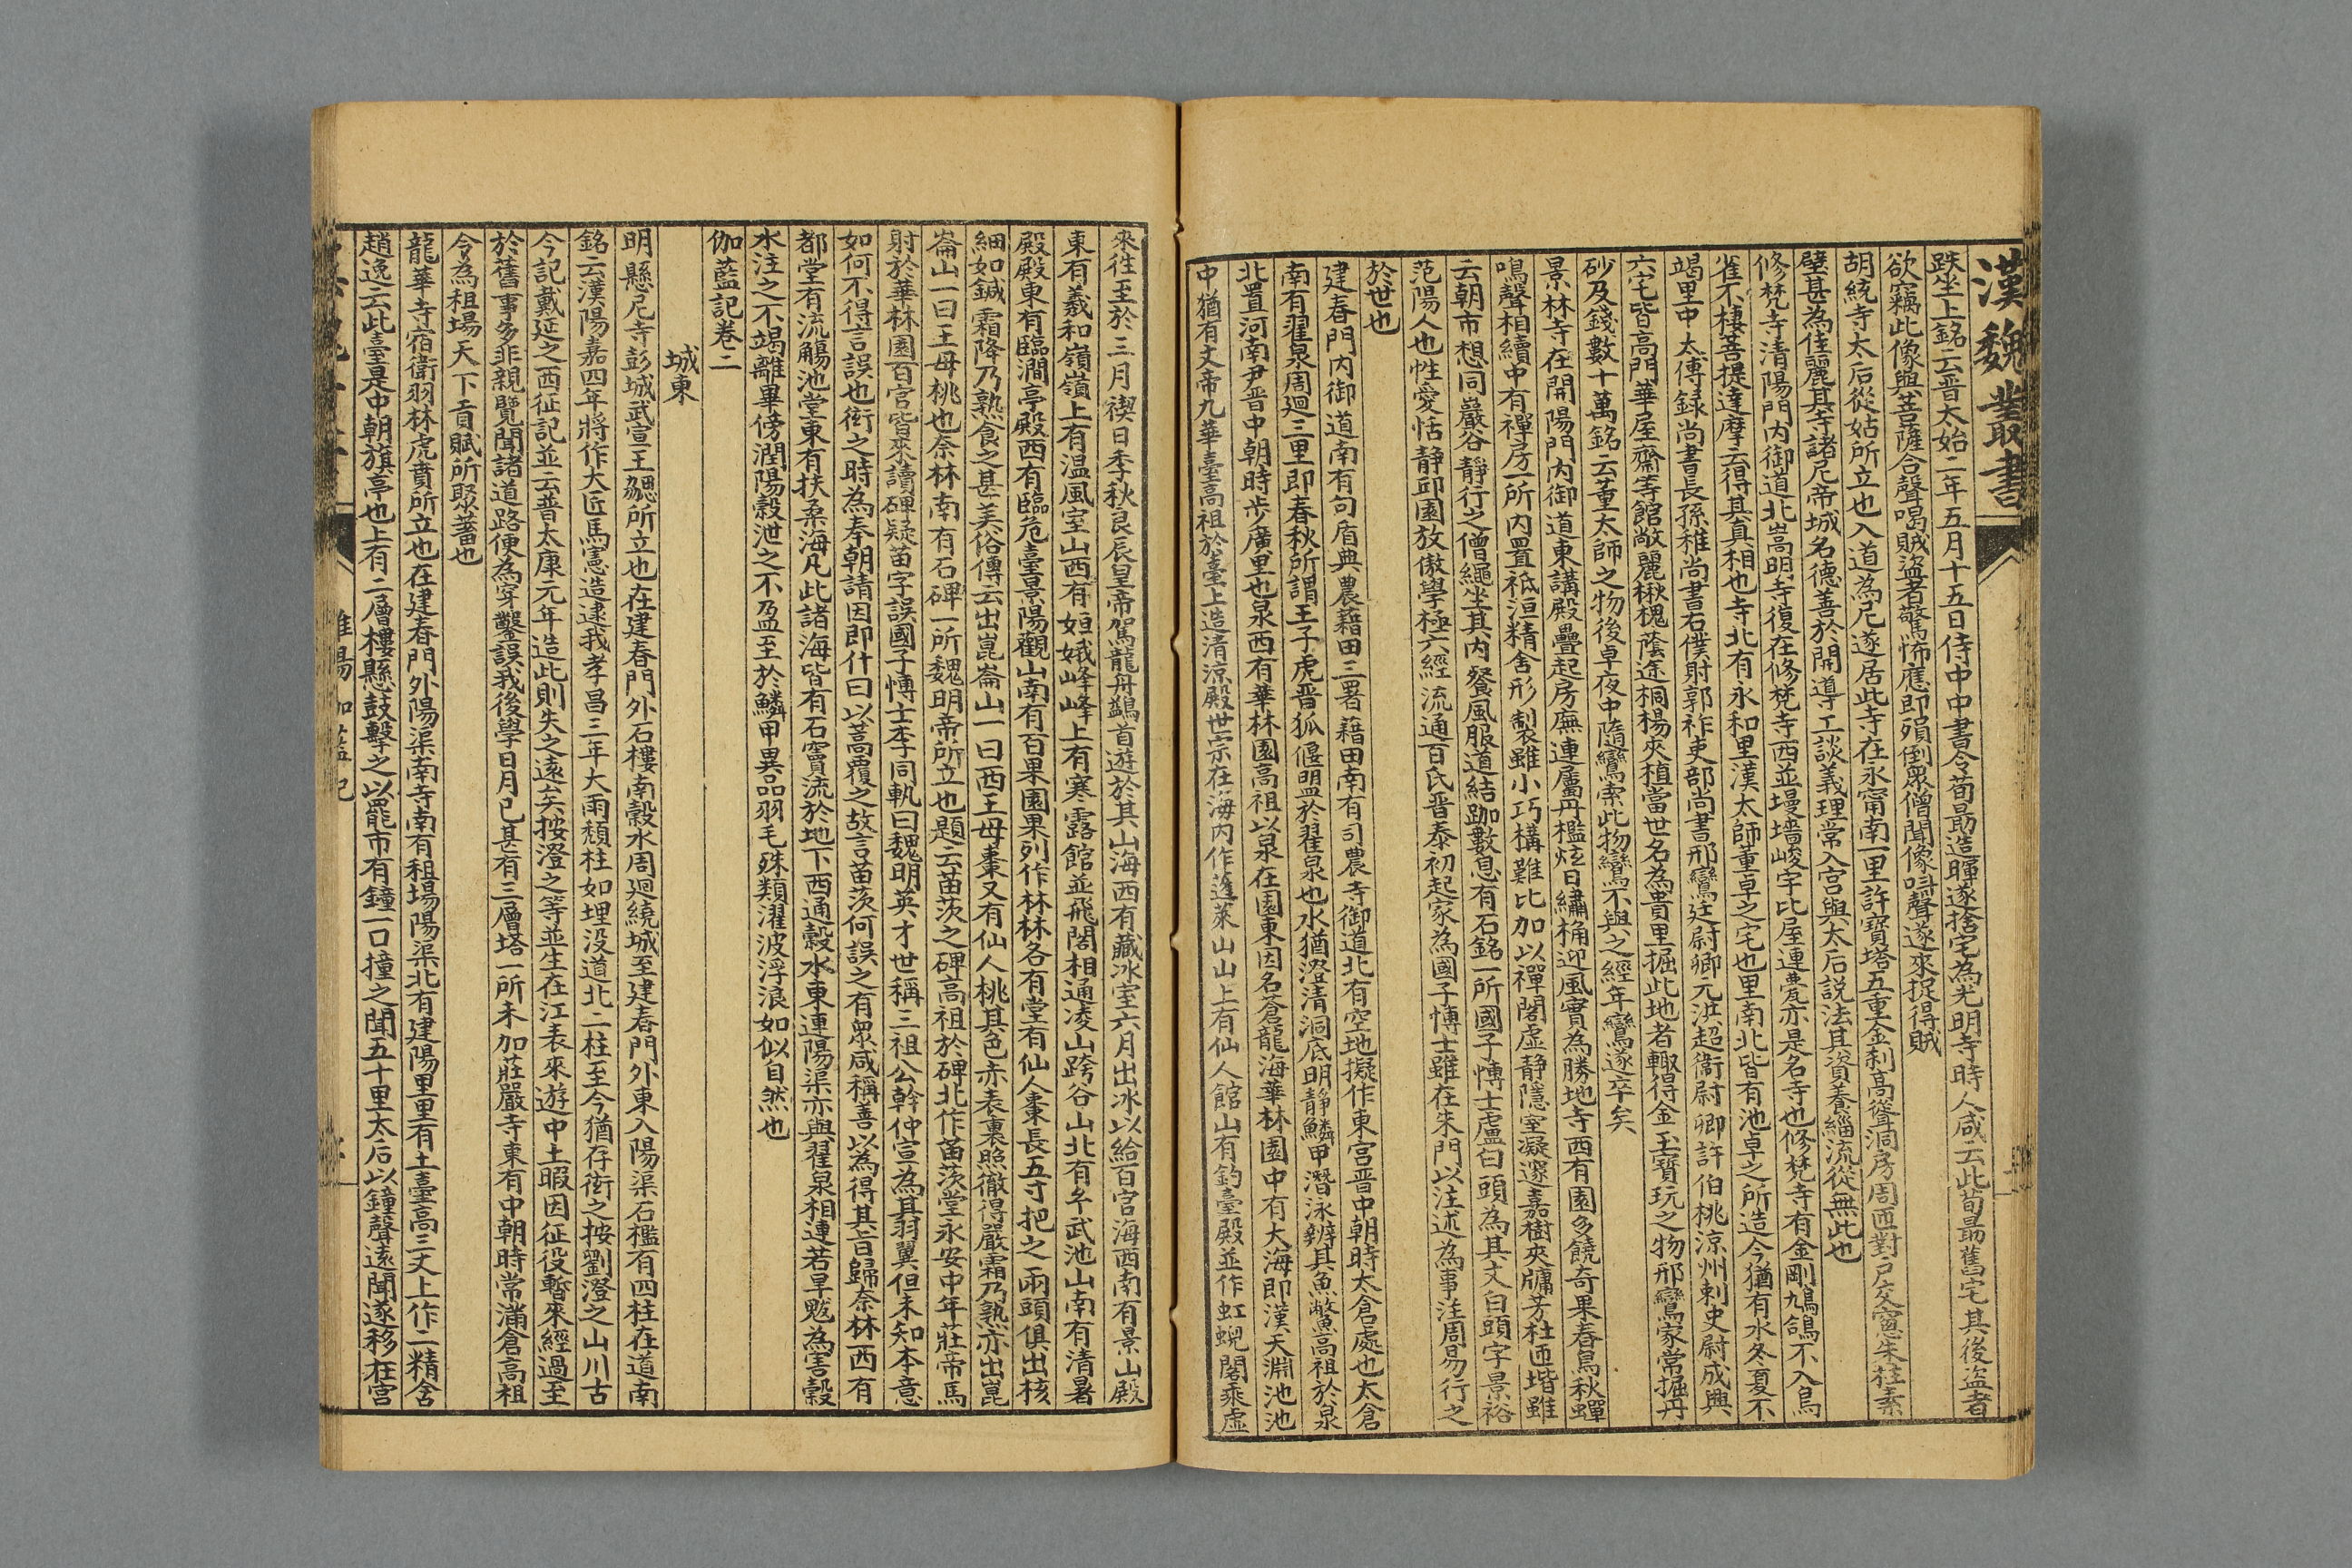 漢魏叢書
趺坐上銘云晉太始二年五月十五日侍中中書令荀勗造暉遂捨宅為光明寺時人咸云此荀勗舊宅其後盜者
欲竊此像與菩薩合聲喝賊盜者驚怖應即殞倒眾僧聞像呌聲遂來捉得賊
胡統寺太后從姑所立也入道為尼遂居此寺在永甯南一里許寶塔五重金剎高聳洞房周匝對戶交窻朱柱素
壁甚為佳麗其寺諸尼帝城名德善於開導工談義理常入宮與太后說法其資養緇流從無此也
修梵寺清陽門內御道北嵩明寺復在修梵寺西並墁墻峻宇比屋連甍亦是名寺也修梵寺有金剛鳩鴿不入烏
雀不棲菩提達摩云得其真相也寺北有永和里漢太師董卓之宅也里南北皆有池卓之所造今猶有水冬夏不
竭里中太傅録尚書長孫稚尚書右僕射郭祚吏部尚書邢鸞廷尉卿元洪超衞尉卿許伯桃涼州刺史尉成興
六宅皆高門華屋齋等館敞麗楸槐蔭途桐楊夾植當世名為貴里掘此地者輙得金玉寶玩之物邢鸞家常掘丹
砂及錢數十萬銘云董太師之物後卓夜中隨鸞索此物鸞不與之經年鸞遂卒矣
景林寺在開陽門內御道東講殿疊起房廡連屬丹檻炫日繡桷迎風實為勝地寺西有園多饒奇果春鳥秋蟬
鳴聲相續中有禪房一所內置祗洹精舍形製雖小巧構難比加以禪閣虛靜隱室凝邃嘉樹夾牗芳杜匝堦雖
云朝市想同巖谷靜行之僧繩坐其內餐風服道結跏數息有石銘一所國子博士盧白頭為其文白頭字景裕
范陽人也性愛恬靜邱園放傲學極六經流通百氏晉泰初起家為國子博士雖在朱門以注述為事注周易行之
於世也
建春門內御道南有句盾典農藉田三署藉田南有司農寺御道北有空地擬作東宮晉中朝時太倉處也太倉
南有翟泉周迴三里即春秋所謂王子虎晉狐偃盟於翟泉也水猶澄清洞底明靜鱗甲潛泳辨其魚鱉高祖於泉
北置河南尹晉中朝時步廣里也泉西有華林園高祖以泉在園東因名蒼龍海華林園中有大海即漢天淵池池
中猶有文帝九華臺高祖於臺上造清涼殿世宗在海內作蓬萊山山上有仙人館山有釣臺殿並作虹蜺閣乘虛
來往至於三月禊日季秋良辰皇帝駕龍舟鷁首遊於其山海西有藏冰室六月出冰以給百官海西南有景山殿
東有羲和嶺嶺上有溫風室山西有姮娥峰峰上有寒露館並飛閣相通凌山跨谷山北有玄武池山南有清暑
殿殿東有臨澗亭殿西有臨危臺景陽觀山南有百果園果列作林林各有堂有仙人棗長五寸把之兩頭俱出核
細如鍼霜降乃熟食之甚美俗傳云出崑崙山一曰西王母棗又有仙人桃其色赤表裏照徹得嚴霜乃熟亦出崑
崙山一曰王母桃也奈林南有石碑一所魏明帝所立也題云苗茨之碑高祖於碑北作苗茨堂永安中年莊帝馬
射於華林園百官皆來讀碑疑苗字誤國子博士李同軌曰魏明英才世稱三祖公幹仲宣為其羽翼但未知本意
如何不得言誤也衒之時為奉朝請因即什曰以蒿覆之故言苗茨何誤之有眾咸稱善以為得其旨歸奈林西有
都堂有流觴池堂東有扶桑海凡此諸海皆有石竇流於地下西通穀水東連陽渠亦與翟泉相連若旱魃為害穀
水注之不竭離畢傍潤陽穀泄之不盈至於鱗甲異品羽毛殊類濯波浮浪如似自然也
伽藍記卷二
城東
明懸尼寺彭城武宣王勰所立也在建春門外石樓南穀水周迴繞城至建春門外東入陽渠石檻有四柱在道南
銘云漢陽嘉四年將作大匠馬憲造逮我孝昌三年大雨頹柱如埋沒道北二柱至今猶存衒之按劉澄之山川古
今記戴延之西征記並云晉太康元年造此則失之遠矣按澄之等並生在江表來遊中土暇因征役暫來經過至
於舊事多非親覽聞諸道路便為穿鑿誤我後學日月已甚有三層塔一所未加莊嚴寺東有中朝時常滿倉高祖
令為租場天下貢賦所聚蓄也
龍華寺宿衛羽林虎賁所立也在建春門外陽渠南寺南有租場陽渠北有建陽里里有土臺高三丈上作二精舍
趙逸云此臺是中朝旗亭也上有二層樓懸鼓擊之以罷市有鐘一口撞之聞五十里太后以鐘聲遠聞遂移在宮